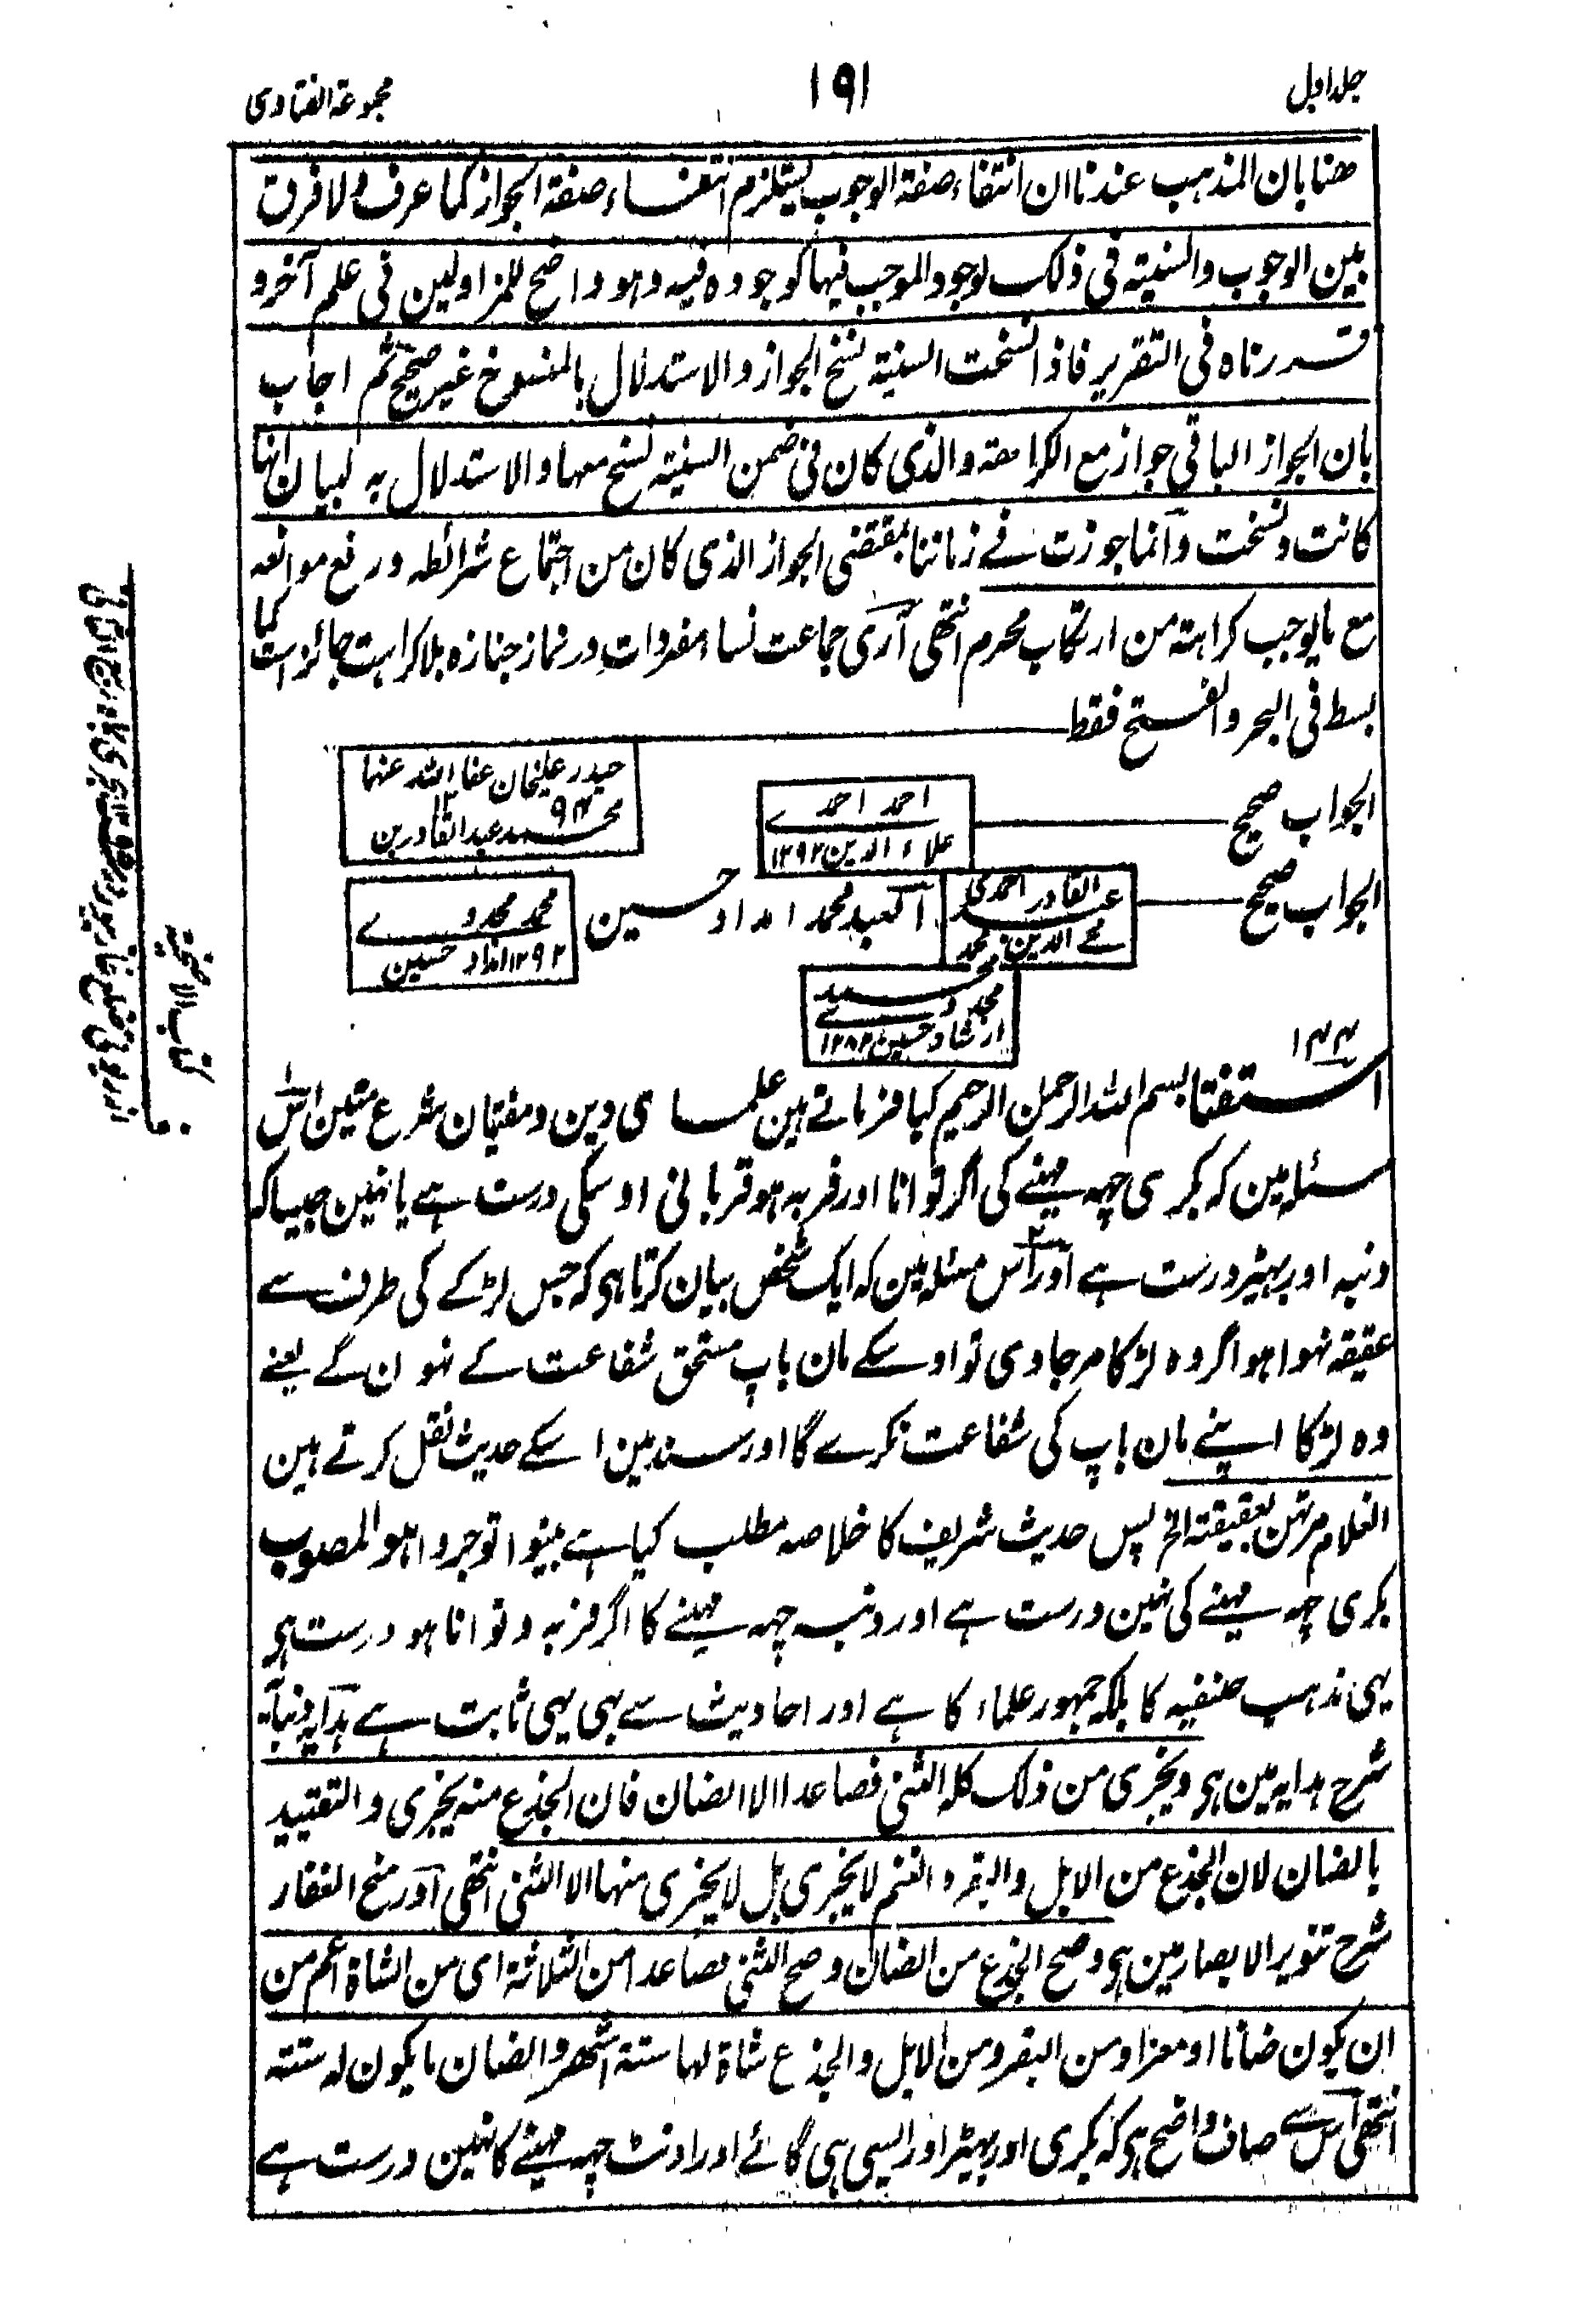 جلد اول
١٩١
مجموعة الفتاوى
ھنا بان المذہب عندنا ان انتفاء صفة الوجوب یستلزم انتفاء صفة الجواز کما عرف ولا فرق
بین الوجوب والسنیتہ فی ذلک لوجود الموجب فیھا کوجودہ فیہ وھو واضح للمزاولین فی علم آخر و
قدرناہ فی التقریر فاذا نسخت السنیتہ نسخ الجواز والاستدلال بالمنسوخ غیر صحیح ثم اجاب
بان الجواز الباقی جواز مع الکراھتہ والذی کان فی ضمن السنیتہ نسخ معہا والاستدلال بہ لبیان انہا
کانت ونسخت وانما جوزت فے زماننا بمقتضی الجواز الذی کان من اجتماع شرائطہ ورفع موانعہ
مع مایوجب کراہتہ من ارتکاب محرم انتھی آری جماعت نساء مفردات در نماز جنازہ بلاکراہت جائز است کما
بسط فی البحر والفتح فقط
حیدر علیخان عفا اللہ عنہما
محمد عبدالقادر بن
الجواب صحیح
احمد احمدے
علاء الدین ١٢٩٢
الجواب صحیح
القادر احمدی
عبد
محے الدین محمد
العبد محمد امداد حسین
محمد مجددے
١٢٩٢ امداد حسین
محمد
مجددے
ارشاد حسین ١٢٨٢
١٤٤
استفتا بسم اللہ الرحمن الرحیم کیا فرماتے ہین علماے دین و مفتیان شرع متین اس
مسئلہ مین کہ بکری چہہ مہینے کی اگر توانا اور فربہ ہو قربانی اوسکی درست ہے یا نہین جیسا کہ
دنبہ اور بہیڑ درست ہے اور اس مسئلہ مین کہ ایک شخص بیان کرتا ہی کہ جس لڑکے کی طرف سے
عقیقہ نہوا ہو اگر وہ لڑکا مرجاوی تو اوسکے مان باپ مستحق شفاعت کے نہون گے یعنے
وہ لڑکا اپنے مان باپ کی شفاعت نکرے گا اور سند مین اسکے حدیث نقل کرتے ہین
الغلام مرتہن بعقیقتہ الخ پس حدیث شریف کا خلاصہ مطلب کیا ہے بینوا توجروا ھو المصوب
بکری چہہ مہینے کی نہین درست ہے اور دنبہ چہہ مہینے کا اگر فربہ و توانا ہو درست ہی
یہی مذہب حنفیہ کا بلکہ جمہور علماء کا ہے اور احادیث سے بہی یہی ثابت ہے ہدایہ و بنایہ
شرح ہدایہ مین ہی ویجزی من ذلک کلہ الثنی فصاعدا الا الضان فان الجذع منہ یجزی والتقیید
بالضان لان الجذع من الابل والبقر والغنم لایجزی بل لایجزی منہا الا الثنی انتھی اور منح الغفار
شرح تنویر الابصار مین ہی وصح الجذع من الضان وصح الثنی فصاعدا من الثلاثة ای من الشاة اعم من
ان یکون ضانا او معزا ومن البقر ومن الابل والجذع شاة لہا ستة اشھر والضان مایکون لہ ستتہ
انتھی اس سے صاف واضح ہی کہ بکری اور بہیڑ اور ایسی ہی گائے اور اونٹ چہہ مہینے کا نہین درست ہے